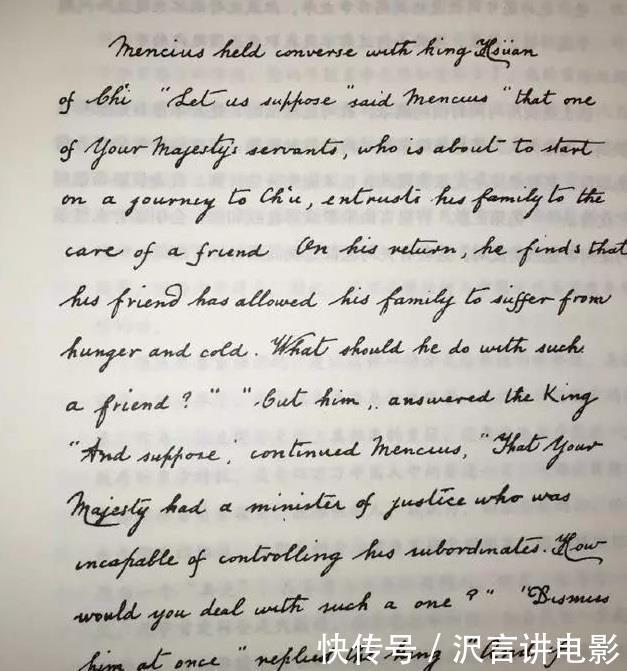 Mencius held converse with king Hsüan
of Ch'i "Let us suppose" said Mencius "that one
of Your Majesty's servants, who is about to start
on a journey to Ch'u, entrusts his family to the
care of a friend On his return, he finds that
his friend has allowed his family to suffer from
hunger and cold. What should he do with such
a friend?" "Cut him, answered the King
"And suppose", continued Mencius, "That Your
Majesty had a minister of justice who was
incapable of controlling his subordinates. How
would you deal with such a one?" "Dismiss
him at once" replied the King "And if
快传号 / 沢言讲电影